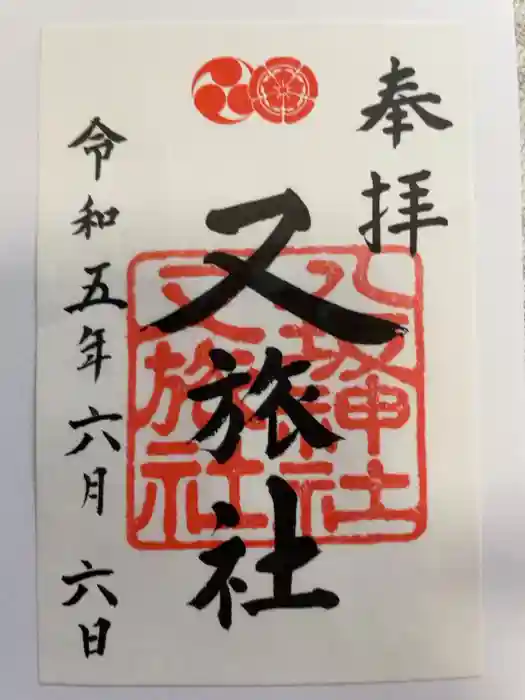 奉拝
又旅社
八坂神社
又旅社
令和五年六月六日